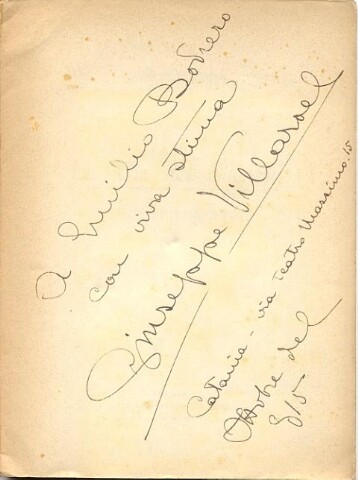 A Emilio Bodrero
con viva stima
Giuseppe Villaroel
Catania - via Teatro Massimo. 15
Ottobre del
915-